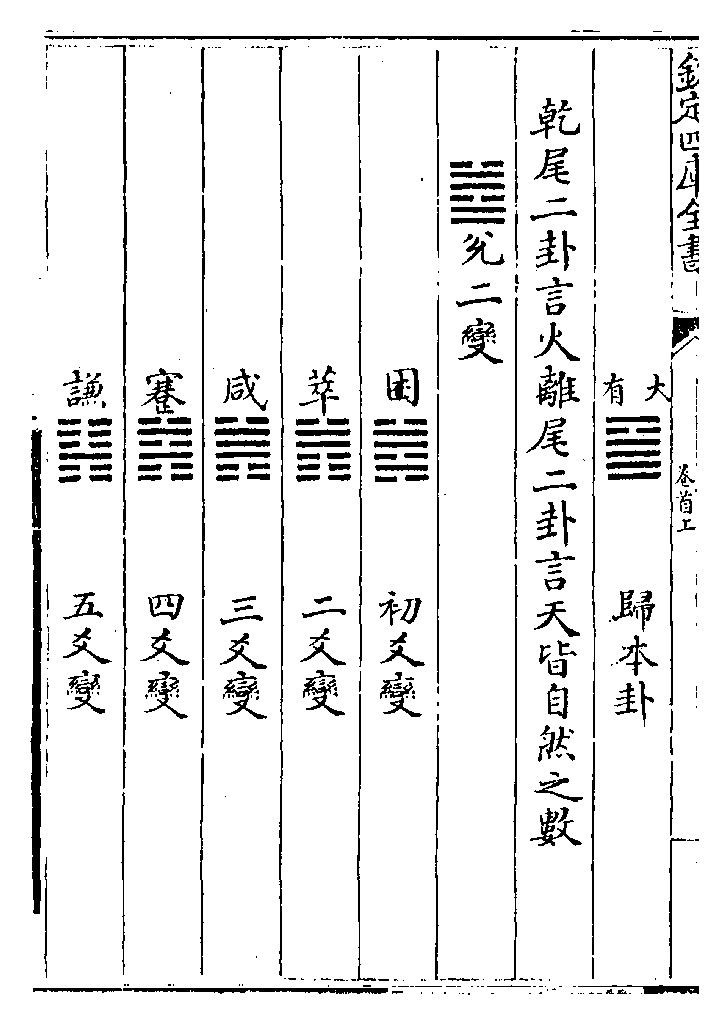 欽定四庫全書
卷首上
大有 歸本卦
乾尾二卦言火離尾二卦言天皆自然之數
兊二變
困 初爻變
萃 二爻變
咸 三爻變
蹇 四爻變
謙 五爻變